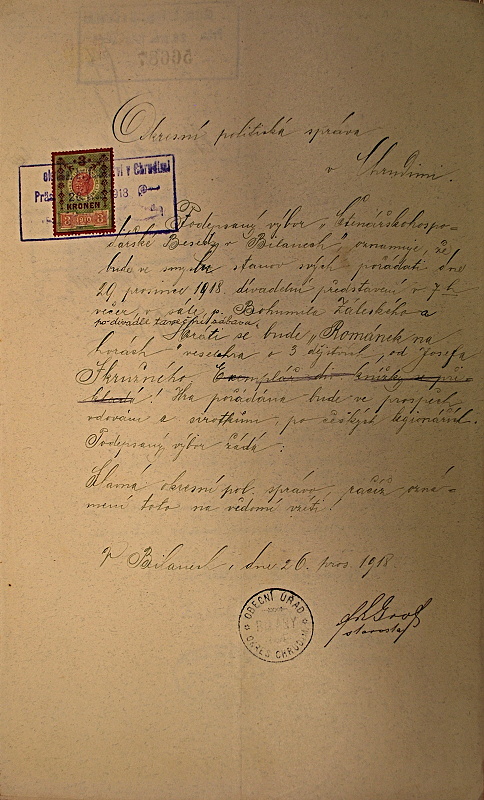 56687
Okresní politická správa
v Chrudimi.
ví v Chrudimi
1918
3
KRONEN
3 1910 3
Podepsaný výbor „Čtenářskohospo-
dářské Besedy v Bílanech, oznamuje, že
bude ve smyslu stanov svých pořádati dne
29. prosince 1918. divadelní představení v 7 h
večer, v sále p. Bohumila Záleského a
po divadle zábava.
Hráti se bude „Románek na
horách" veselohra o 3 dějstvích, od Josefa
Skružného
! Hra pořádána bude ve prospěch
vdovám a sirotkům, po českých legionářích.
Podepsaný výbor žádá:
Slavná okresní pol. správo, račiž ozná-
mení toto na vědomí vzíti!
V Bílanech, dne 26. pros. 1918.
OBECNÍ ÚŘAD
BÍLANY
OKRES CHRUDIM
starosta